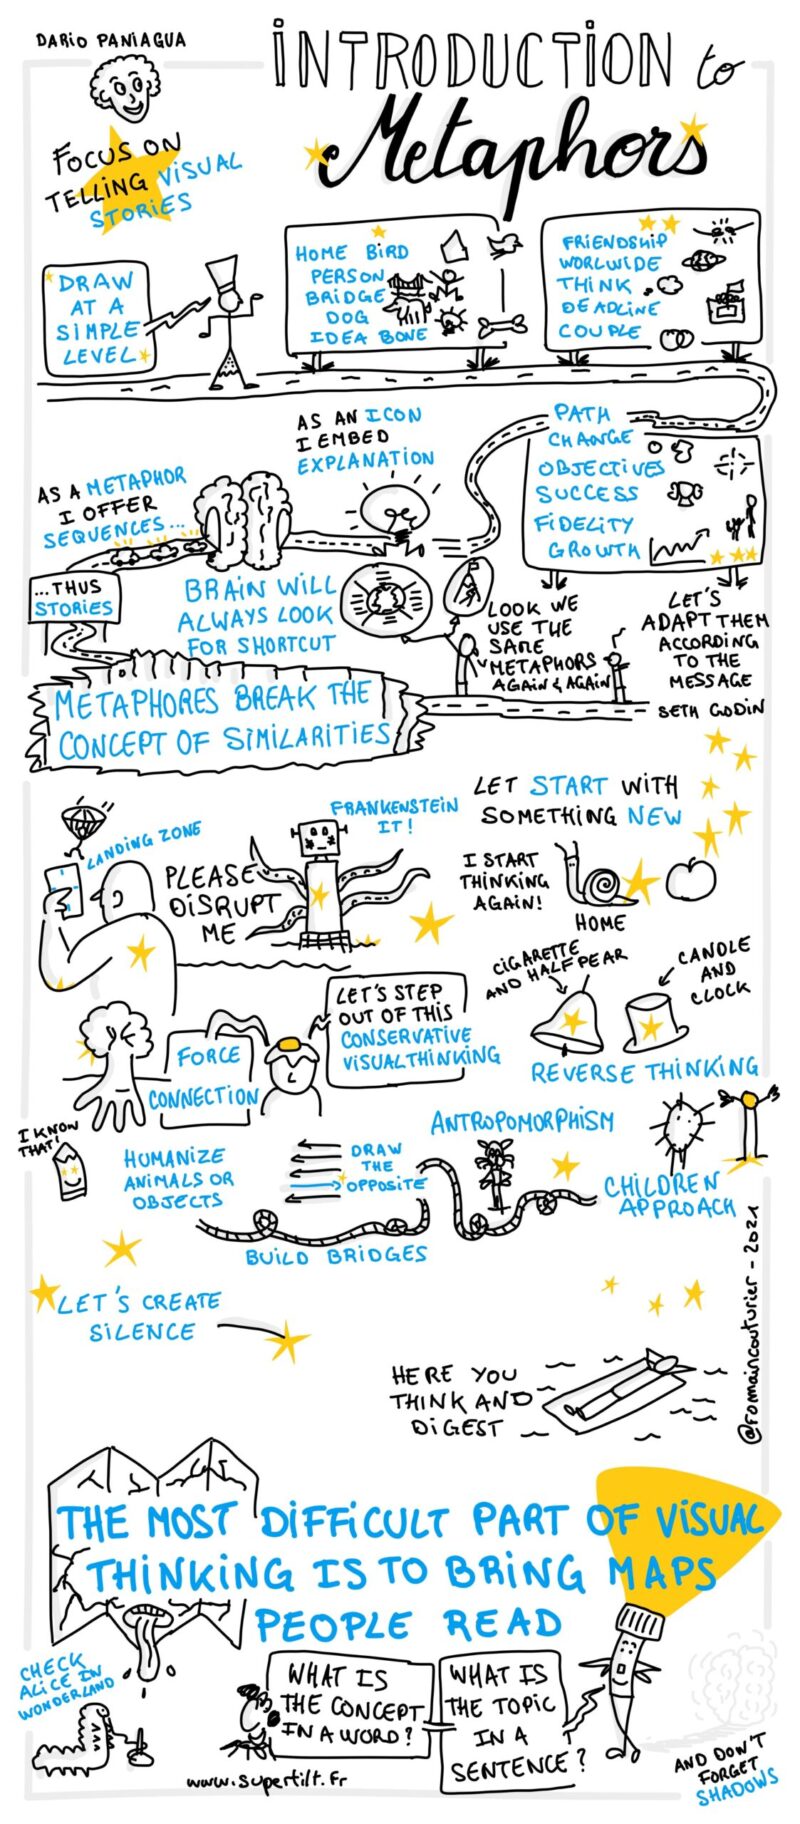 DARIO PANIAGUA
INTRODUCTION to
Metaphors
FOCUS ON
TELLING VISUAL
STORIES
DRAW
AT A
SIMPLE
LEVEL
HOME BIRD
PERSON
BRIDGE
DOG
IDEA BONE
FRIENDSHIP
WORLWIDE
THINK
DEADLINE
COUPLE
PATH
CHANGE
OBJECTIVES
SUCCESS
FIDELITY
GROWTH
AS AN ICON
I EMBED
EXPLANATION
AS A METAPHOR
I OFFER
SEQUENCES...
...THUS
STORIES
BRAIN WILL
ALWAYS LOOK
FOR SHORTCUT
LOOK WE
USE THE
SAME
METAPHORS
AGAIN & AGAIN
LET'S
ADAPT THEM
ACCORDING
TO THE
MESSAGE
SETH GODIN
METAPHORES BREAK THE
CONCEPT OF SIMILARITIES
LET START WITH
SOMETHING NEW
LANDING ZONE
FRANKENSTEIN
IT!
PLEASE
DISRUPT
ME
I START
THINKING
AGAIN!
HOME
CIGARETTE
AND HALF PEAR
CANDLE
AND
CLOCK
REVERSE THINKING
FORCE
CONNECTION
LET'S STEP
OUT OF THIS
CONSERVATIVE
VISUALTHINKING
I KNOW
THAT!
HUMANIZE
ANIMALS OR
OBJECTS
DRAW
THE
OPPOSITE
ANTROPOMORPHISM
CHILDREN
APPROACH
BUILD BRIDGES
@romaincouturier - 2021
LET'S CREATE
SILENCE
HERE YOU
THINK AND
DIGEST
THE MOST DIFFICULT PART OF VISUAL
THINKING IS TO BRING MAPS
PEOPLE READ
CHECK
ALICE IN
WONDERLAND
WHAT IS
THE CONCEPT
IN A WORD?
WHAT IS
THE TOPIC
IN A
SENTENCE?
www.supertilt.fr
AND DON'T
FORGET
SHADOWS